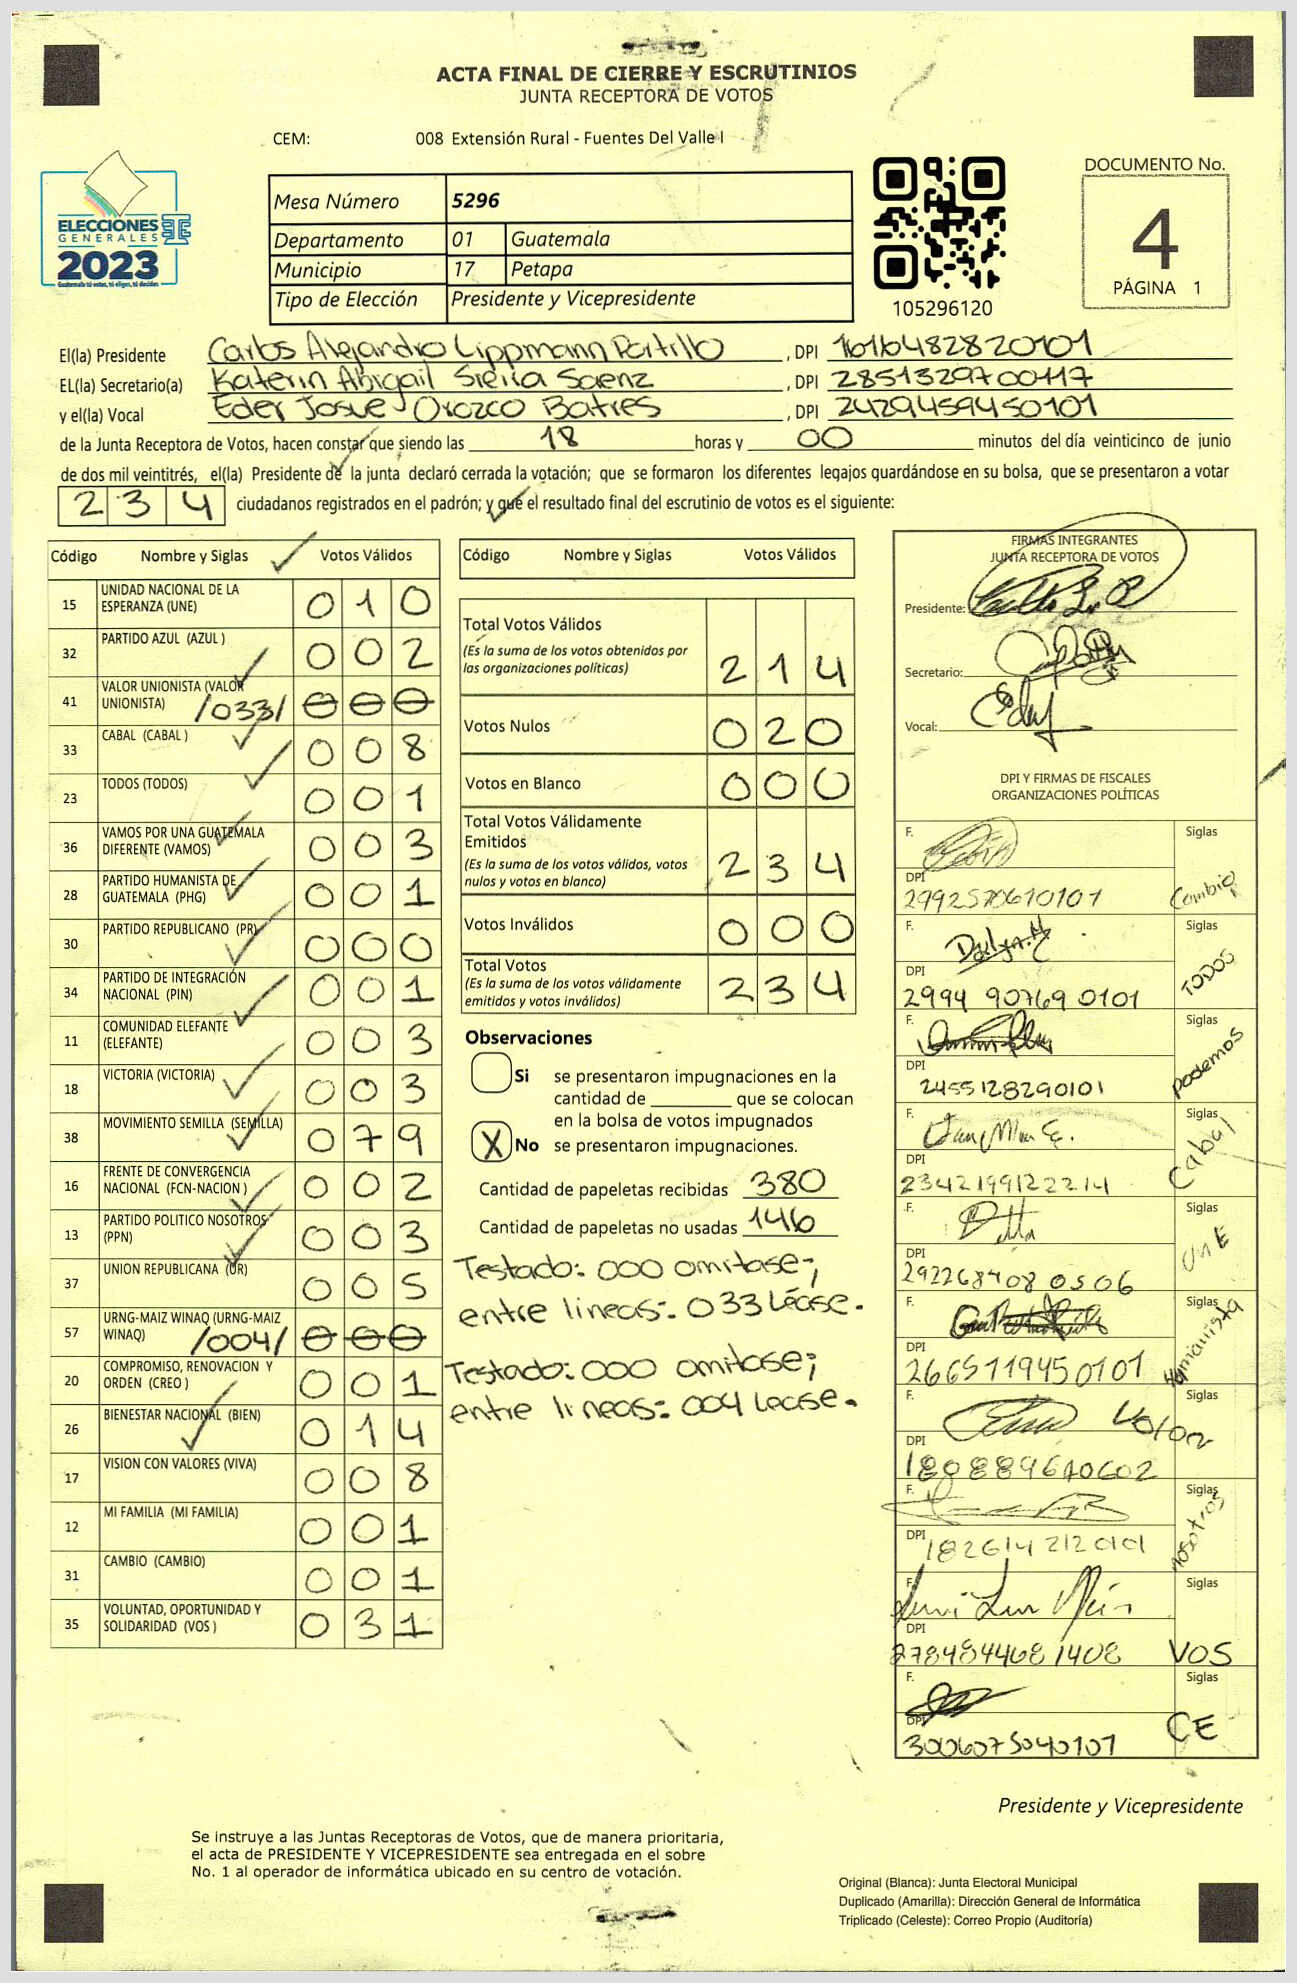 ACTA FINAL DE CIERRE Y ESCRUTINIOS
JUNTA RECEPTORA DE VOTOS
CEM: 008 Extensión Rural - Fuentes Del Valle I
ELECCIONES
GENERALES
2023
Guatemala tú votas, tú eliges, tú decides
Mesa Número 5296
Departamento 01 Guatemala
Municipio 17 Petapa
Tipo de Elección Presidente y Vicepresidente
105296120
DOCUMENTO No.
4
PÁGINA 1
El(la) Presidente Carlos Alejandro Lippmann Portillo , DPI 1616482820101
EL(la) Secretario(a) Katerin Abigail Sierra Saenz , DPI 2851329700117
y el(la) Vocal Eder Josue Orozco Batres , DPI 2429459450101
de la Junta Receptora de Votos, hacen constar que siendo las 18 horas y 00 minutos del día veinticinco de junio
de dos mil veintitrés, el(la) Presidente de la junta declaró cerrada la votación; que se formaron los diferentes legajos quardándose en su bolsa, que se presentaron a votar
234 ciudadanos registrados en el padrón; y que el resultado final del escrutinio de votos es el siguiente:
Código Nombre y Siglas Votos Válidos
15 UNIDAD NACIONAL DE LA ESPERANZA (UNE) 010
32 PARTIDO AZUL (AZUL ) 002
41 VALOR UNIONISTA (VALOR UNIONISTA) /033/ 000
33 CABAL (CABAL ) 008
23 TODOS (TODOS) 001
36 VAMOS POR UNA GUATEMALA DIFERENTE (VAMOS) 003
28 PARTIDO HUMANISTA DE GUATEMALA (PHG) 001
30 PARTIDO REPUBLICANO (PR) 000
34 PARTIDO DE INTEGRACIÓN NACIONAL (PIN) 001
11 COMUNIDAD ELEFANTE (ELEFANTE) 003
18 VICTORIA (VICTORIA) 003
38 MOVIMIENTO SEMILLA (SEMILLA) 079
16 FRENTE DE CONVERGENCIA NACIONAL (FCN-NACION ) 002
13 PARTIDO POLITICO NOSOTROS (PPN) 003
37 UNION REPUBLICANA (UR) 005
57 URNG-MAIZ WINAQ (URNG-MAIZ WINAQ) /004/ 000
20 COMPROMISO, RENOVACION Y ORDEN (CREO ) 001
26 BIENESTAR NACIONAL (BIEN) 014
17 VISION CON VALORES (VIVA) 008
12 MI FAMILIA (MI FAMILIA) 001
31 CAMBIO (CAMBIO) 001
35 VOLUNTAD, OPORTUNIDAD Y SOLIDARIDAD (VOS ) 031
Código Nombre y Siglas Votos Válidos
Total Votos Válidos
(Es la suma de los votos obtenidos por las organizaciones políticas) 214
Votos Nulos 020
Votos en Blanco 000
Total Votos Válidamente Emitidos
(Es la suma de los votos válidos, votos nulos y votos en blanco) 234
Votos Inválidos 000
Total Votos
(Es la suma de los votos válidamente emitidos y votos inválidos) 234
Observaciones
Si se presentaron impugnaciones en la
cantidad de que se colocan
en la bolsa de votos impugnados
X No se presentaron impugnaciones.
Cantidad de papeletas recibidas 380
Cantidad de papeletas no usadas 146
Testado: 000 omitase;
entre lineas: 033 Léase.
Testado: 000 omitase;
entre lineas: 004 Lease.
FIRMAS INTEGRANTES
JUNTA RECEPTORA DE VOTOS
Presidente:
Secretario:
Vocal:
DPI Y FIRMAS DE FISCALES
ORGANIZACIONES POLÍTICAS
F. Siglas
DPI 2992570610101 Cambio
F. Siglas
DPI 2994 90769 0101 TODOS
F. Siglas
DPI 2455128290101 podemos
F. Siglas
DPI 2342199122214 Cabal
F. Siglas
DPI 292268408 0506 UNE
F. Siglas
DPI 2665119450101 Humanista
F. Valor
DPI 180889640602
F. Siglas
DPI 182614212 0101 nosotros
F. Siglas
DPI 278484468 1408 VOS
F. Siglas
DPI 3006075040101 CE
Presidente y Vicepresidente
Se instruye a las Juntas Receptoras de Votos, que de manera prioritaria,
el acta de PRESIDENTE Y VICEPRESIDENTE sea entregada en el sobre
No. 1 al operador de informática ubicado en su centro de votación.
Original (Blanca): Junta Electoral Municipal
Duplicado (Amarilla): Dirección General de Informática
Triplicado (Celeste): Correo Propio (Auditoría)